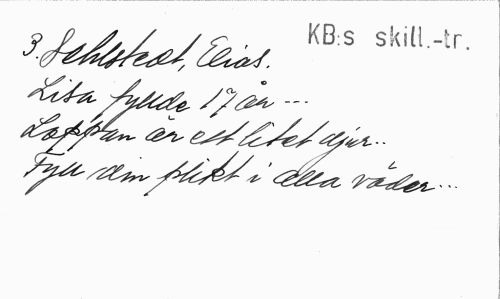 KB:s skill.-tr.
3. Sehlstedt, Elias.
Lisa fyllde 17 år ---
Loppan är ett litet djur..
Fyll din plikt i alla väder...